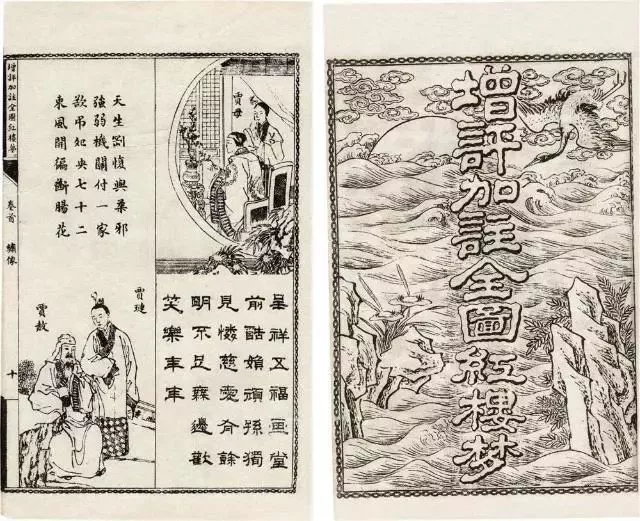 增評加註全圖紅樓梦
賈母
天生剛愎與柔邪
強弱機關付一家
欲弔夗央七十二
東風開徧斷腸花
呈祥五福畫堂
前酷賴頑孫獨
見憐慈愛有餘
明不足無邊歡
笑樂年年
賈璉
賈赦
增評加註全圖紅樓夢
卷首
繡像
十